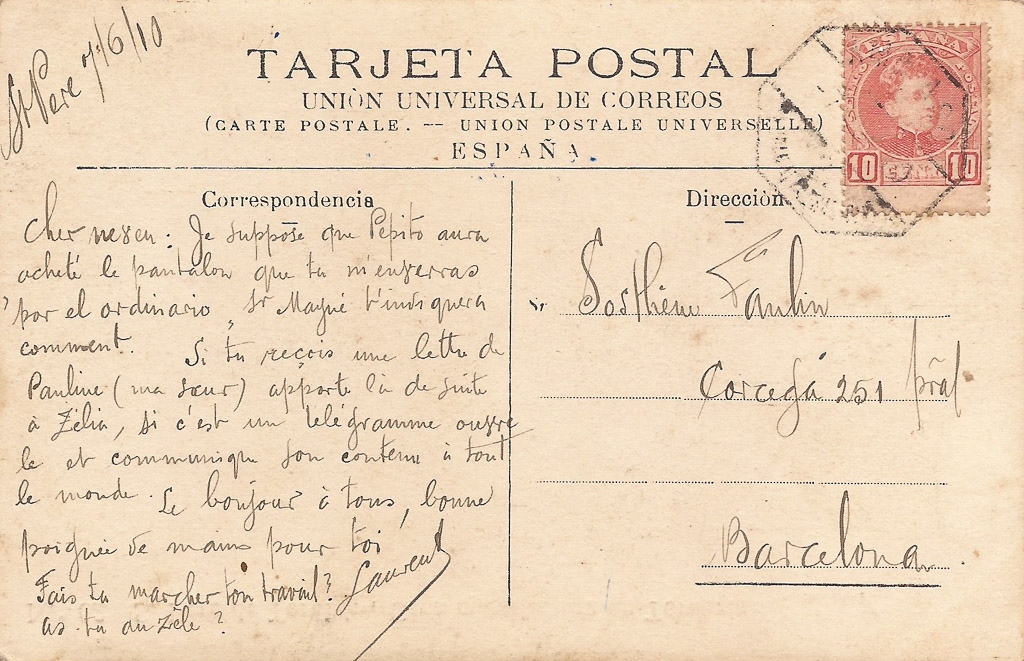 St Pere 7/6/10
TARJETA POSTAL
UNIÒN UNIVERSAL DE CORREOS
(CARTE POSTALE. -- UNION POSTALE UNIVERSELLE)
ESPAÑA
Correspondencia
Cher neveu : Je suppose que Pepito aura
acheté le pantalon que tu m'enverras
"por el ordinario" Sr Magné t'indiquera
comment. Si tu reçois une lettre de
Pauline (ma sœur) apporte là de suite
à Zélia, si c'est un télégramme ouvre
le et communique son contenu à tout
le monde. Le bonjour à tous, bonne
poignée de mains pour toi
Laurent
Fais tu marcher ton travail?
as tu du zèle?
Direcciòn
Sr Sosthène Faulin
Corcega 251 pral
Barcelona
ESPAÑA
10 CENT 10